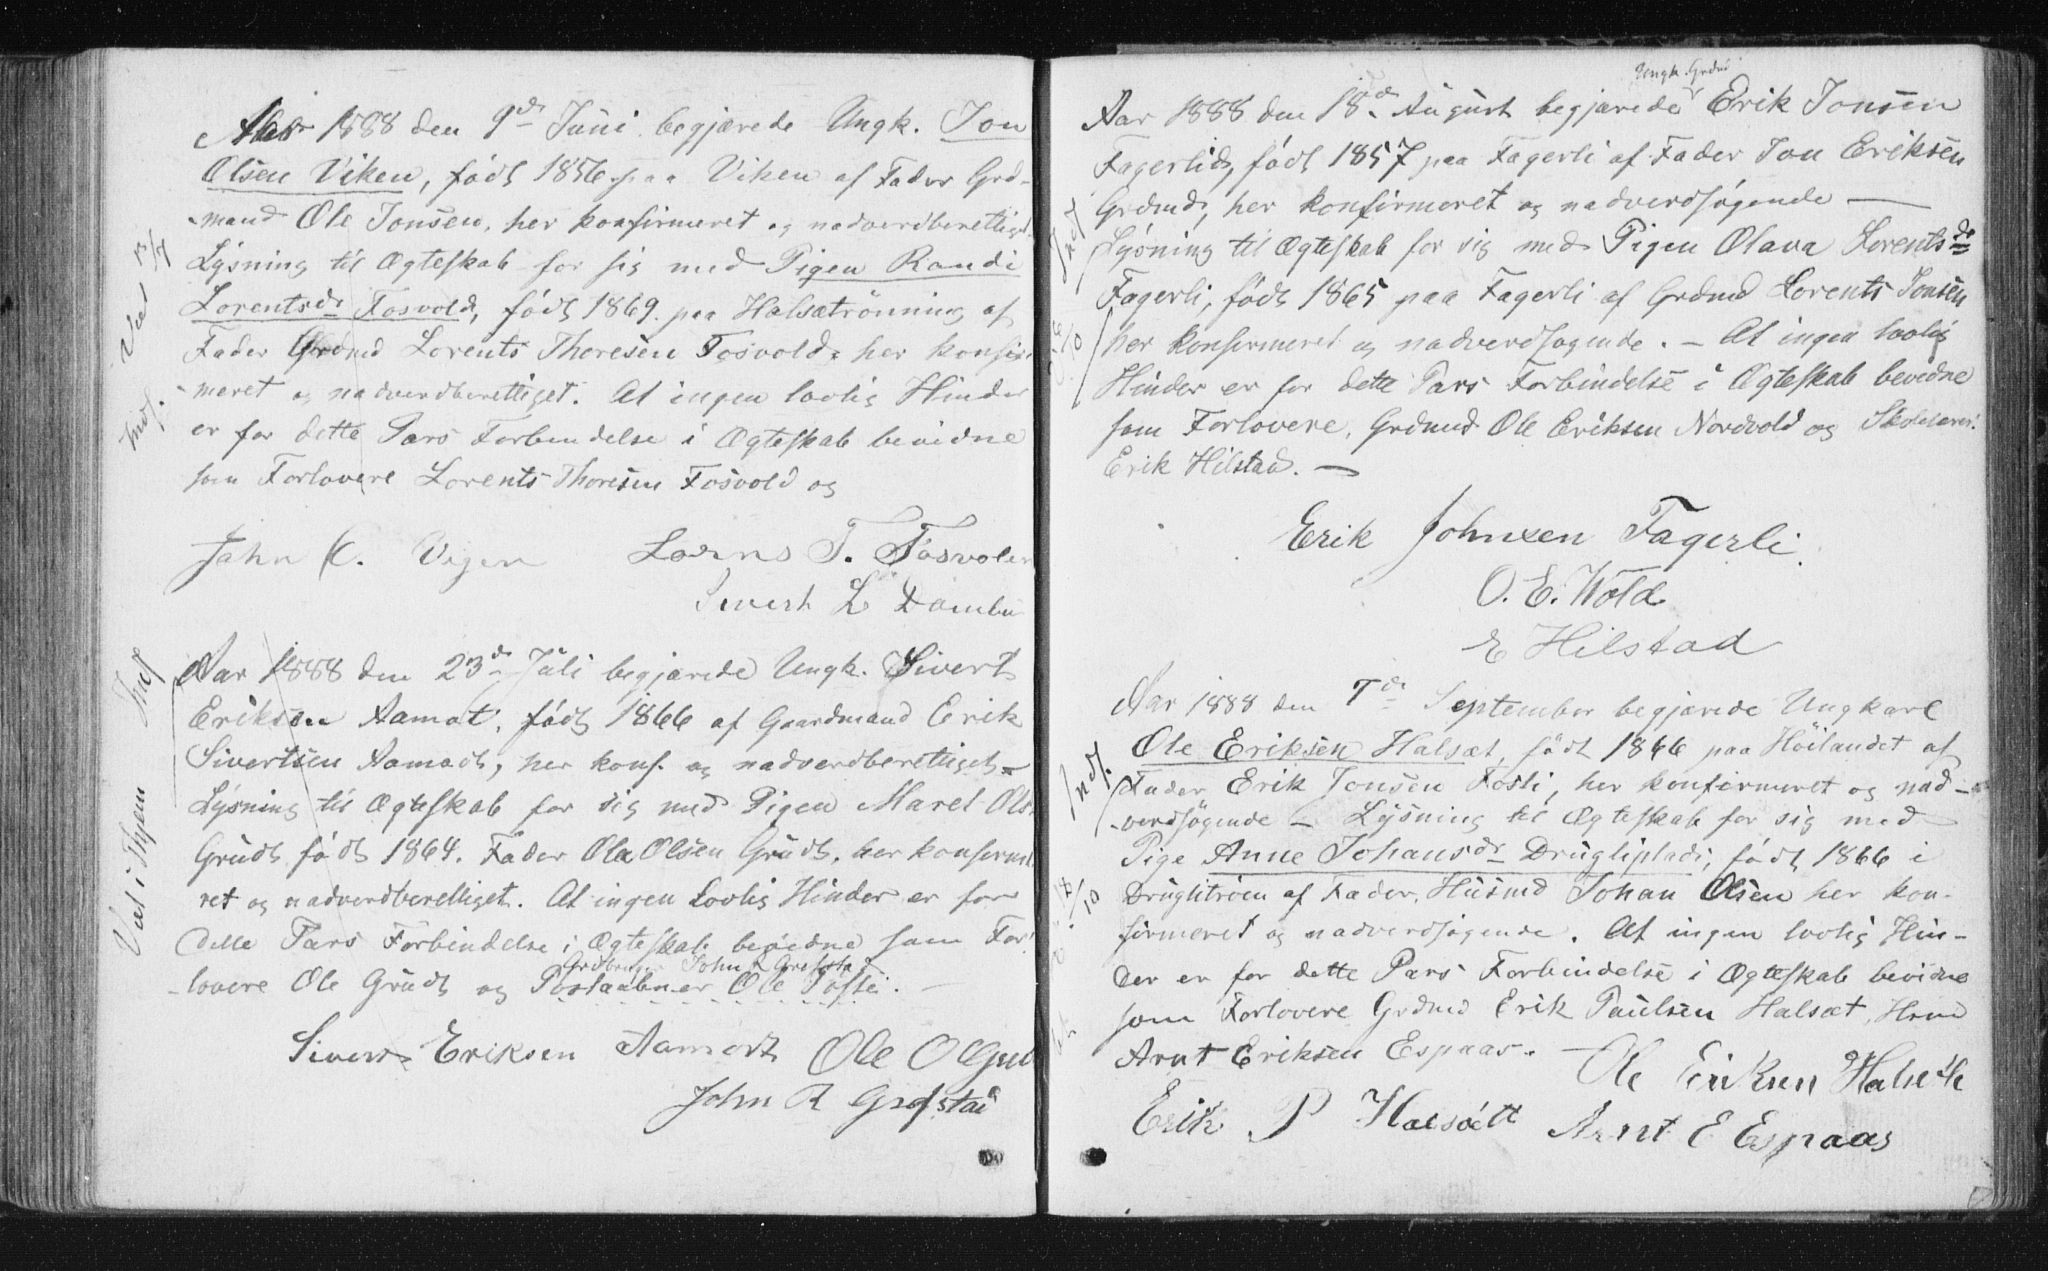 Aar 1888 den 9de Juni begjærede Ungk. Jon
Olsen Viken, født 1856 paa Viken af Fader Grd-
mand Ole Jonsen, her konfirmeret og nadverdberettiget.
Lysning til Ægteskab for sig med Pigen Randi
Lorentsdr Fosvold, født 1869 paa Halsætrønning af
Fader Grdmd Lorents Thoresen Fosvold, her konfir-
meret og nadverdberettiget. At ingen lovlig Hinder
er for dette Pars Forbindelse i Ægteskab bevidne
som Forlovere Lorents Thoresen Fosvold og
Indf. Viet 13/7
John C. Vigen Lorns T. Fosvolen
Sivert L Dombu
Aar 1888 den 23de Juli begjærede Ungk. Sivert
Eriksen Aamot, født 1866 af Gaardmand Erik
Sivertsen Aamodt, her konf. og nadverdberettiget
Lysning til Ægteskab for sig med Pigen Maret Ols.
Grudt født 1864. Fader Ole Olsen Grudt, her konfirme
ret og nadverdberettiget. At ingen Lovlig Hinder er for
dette Pars Forbindelse i Ægteskab bevidne som For-
Grdbruger John R Grefsta
lovere Ole Grudt og Postaabner Ole Tofte. —
Viet i Hjem Indf
Sivert Eriksen Aamodt Ole O Grud
John R Grefstad
Ungk. Grdmd
Aar 1888 den 18de August begjærede Erik Jonsen
Fagerlid, født 1857 paa Fagerli af Fader Jon Eriksen
Grdmd, her konfirmeret og nadverdsøgende —
Lysning til Ægteskab for sig med Pigen Olava Lorentsdr
Fagerli, født 1865 paa Fagerli af Grdmd Lorents Jonsen
her konfirmeret og nadverdsøgende. — At ingen lovlig
Hinder er for dette Pars Forbindelse i Ægteskab bevidne
som Forlovere, Grdmd Ole Eriksen Nordvold og Skolelærer
Erik Hilstad. —
Indf
Erik Johnsen Fagerli
O. E. Wold
E Hilstad
Aar 1888 den 7de September begjærede Ungkarl
Ole Eriksen Halsæt, født 1866 paa Höilandet af
Fader Erik Jonsen Fosli, her konfirmeret og nad-
verdsögende — Lysning til Ægteskab for sig med
Pige Anne Johansdr Drugliplads, født 1866 i
Druglitrøen af Fader, Husmd Johan Olsen her kon-
firmeret og nadverdsøgende. At ingen lovlig Hin-
der er for dette Pars Forbindelse i Ægteskab bevidne
som Forlovere Grdmd Erik Paulsen Halsæt, Hsmd
Arnt Eriksen Espaas. —
Indf.
Ole Eriksen Halseth
Erik P Halsætt Arnt E Espaas